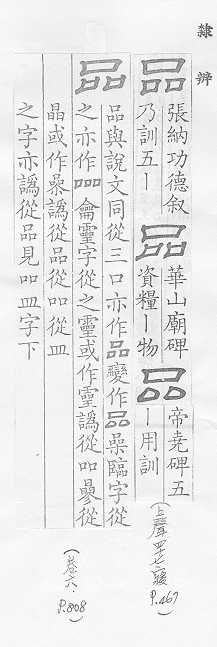 隸辨
品 張納功德叙
乃訓五丨
品 華山廟碑
資糧丨物
品 帝堯碑五
丨用訓
品 品與說文同從三口亦作品變作品喿臨字從
之亦作𠱠龠靈字從之靈或作霊譌從吅曑從
晶或作喿譌從品從吅從皿
之字亦譌從品見吅皿字下
(上聲四十七寑
P.467)
(卷六、
P.808)